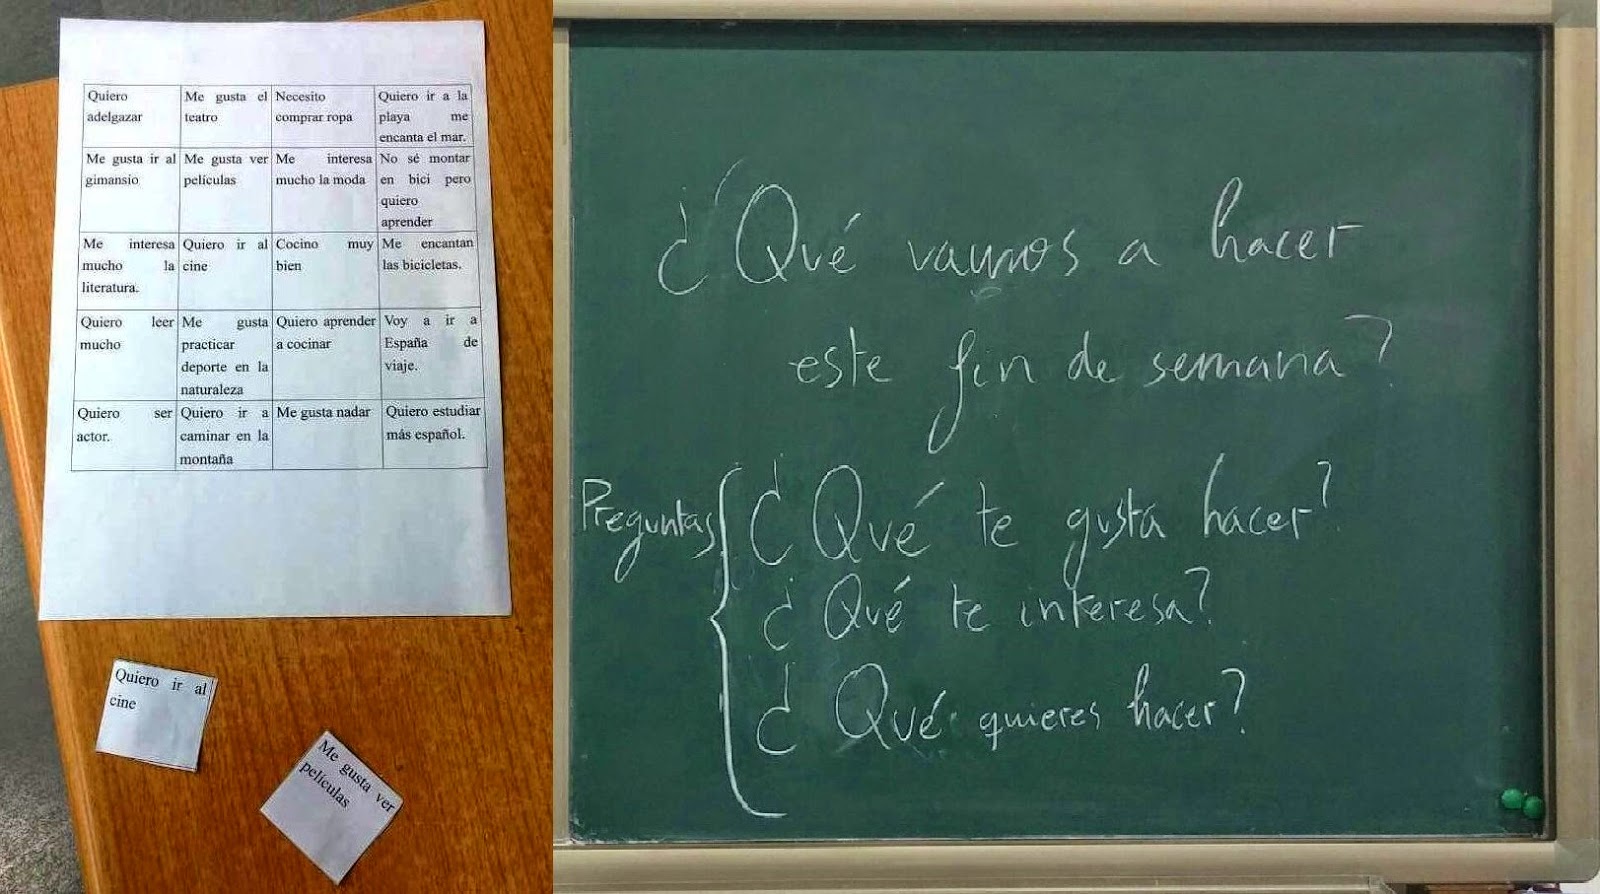 Quiero
adelgazar
Me gusta el
teatro
Necesito
comprar ropa
Quiero ir a la
playa me
encanta el mar.
Me gusta ir al
gimansio
Me gusta ver
películas
Me interesa
mucho la moda
No sé montar
en bici pero
quiero
aprender
Me interesa
mucho la
literatura.
Quiero ir al
cine
Cocino muy
bien
Me encantan
las bicicletas.
Quiero leer
mucho
Me gusta
practicar
deporte en la
naturaleza
Quiero aprender
a cocinar
Voy a ir a
España de
viaje.
Quiero ser
actor.
Quiero ir a
caminar en la
montaña
Me gusta nadar
Quiero estudiar
más español.
Quiero ir al
cine
Me gusta ver
películas
¿Qué vamos a hacer
este fin de semana?
Preguntas
¿Qué te gusta hacer?
¿Qué te interesa?
¿Qué quieres hacer?